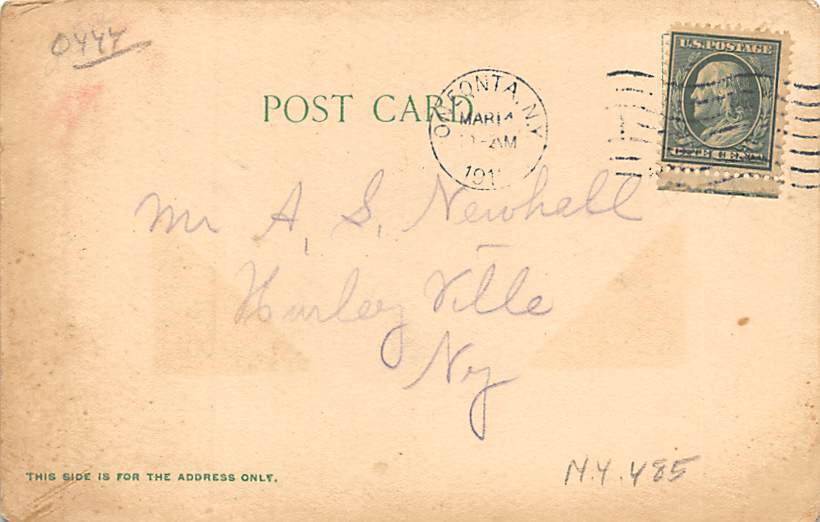 0444
U.S. POSTAGE
POST CARD
ONEONTA, N.Y.
MAR 14
AM
191
Mr A. S. Newhall
Hurley Ville
Ny
THIS SIDE IS FOR THE ADDRESS ONLY.
N.Y. 485